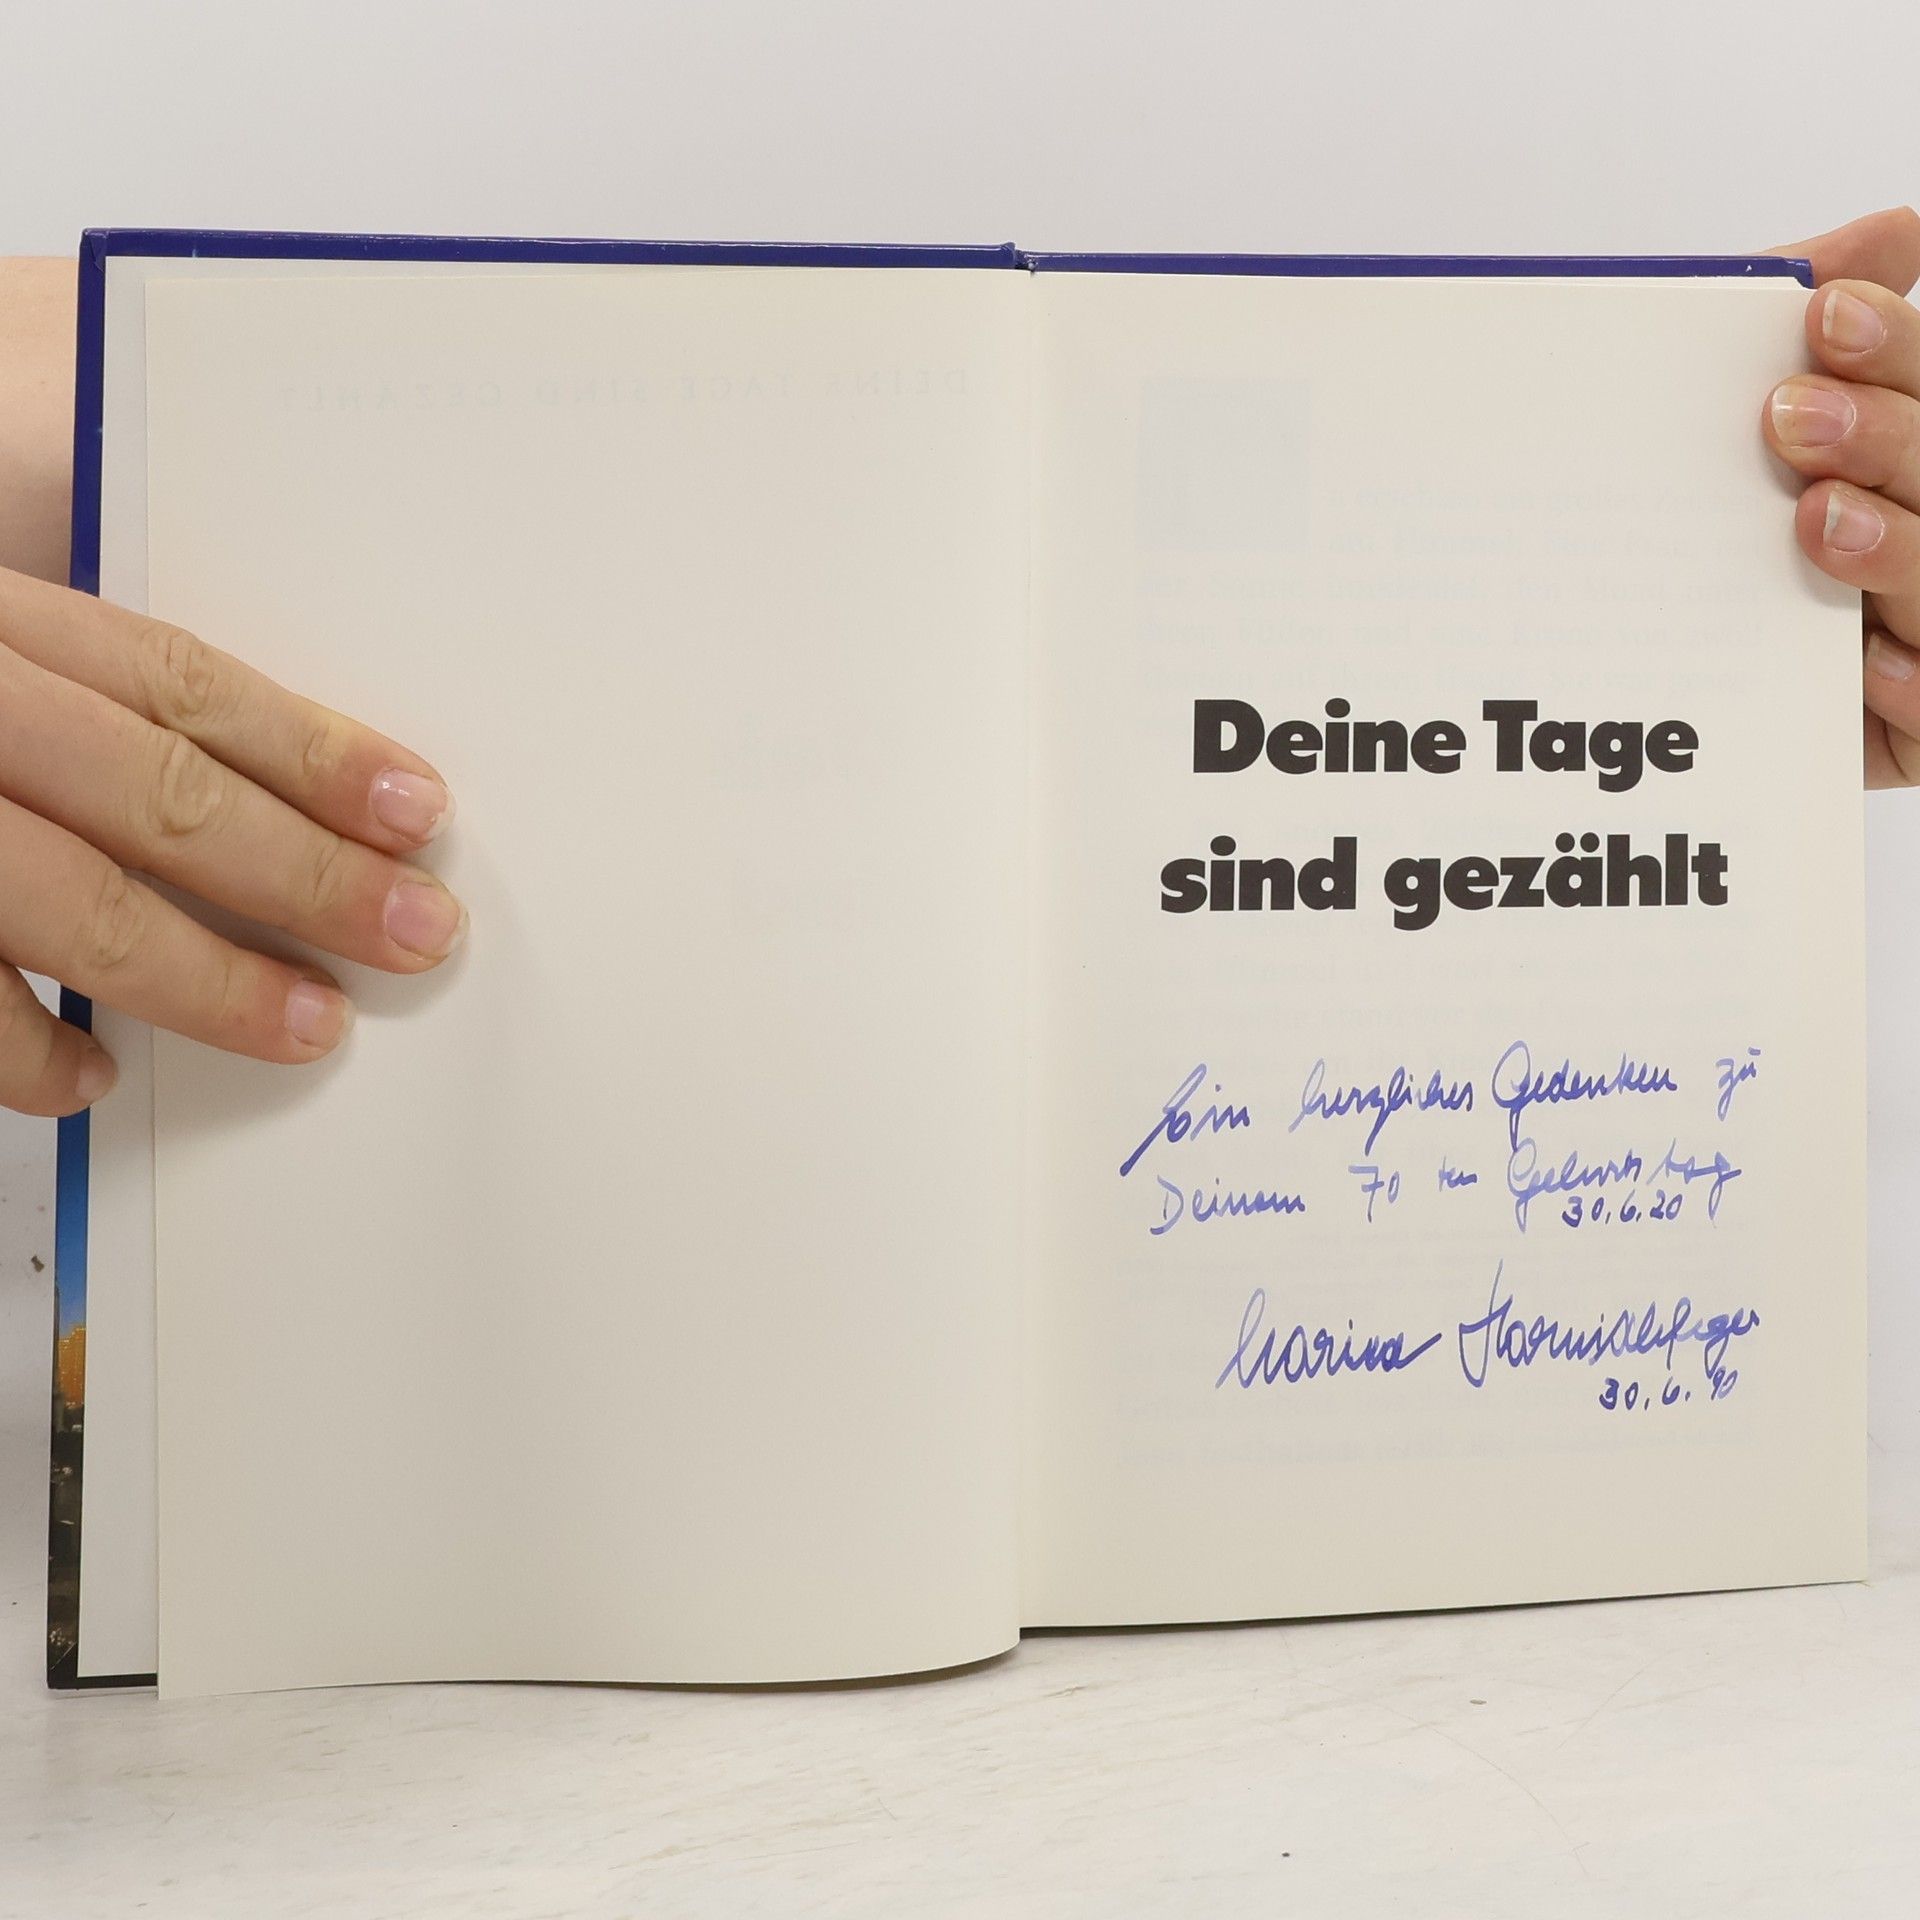 DEINE TAGE SIND GEZÄHLT
Deine Tage
sind gezählt
Ein herzliches Gedenken zu
Deinem 70 ten Geburtstag
30.6.20
Marina
30.6.90